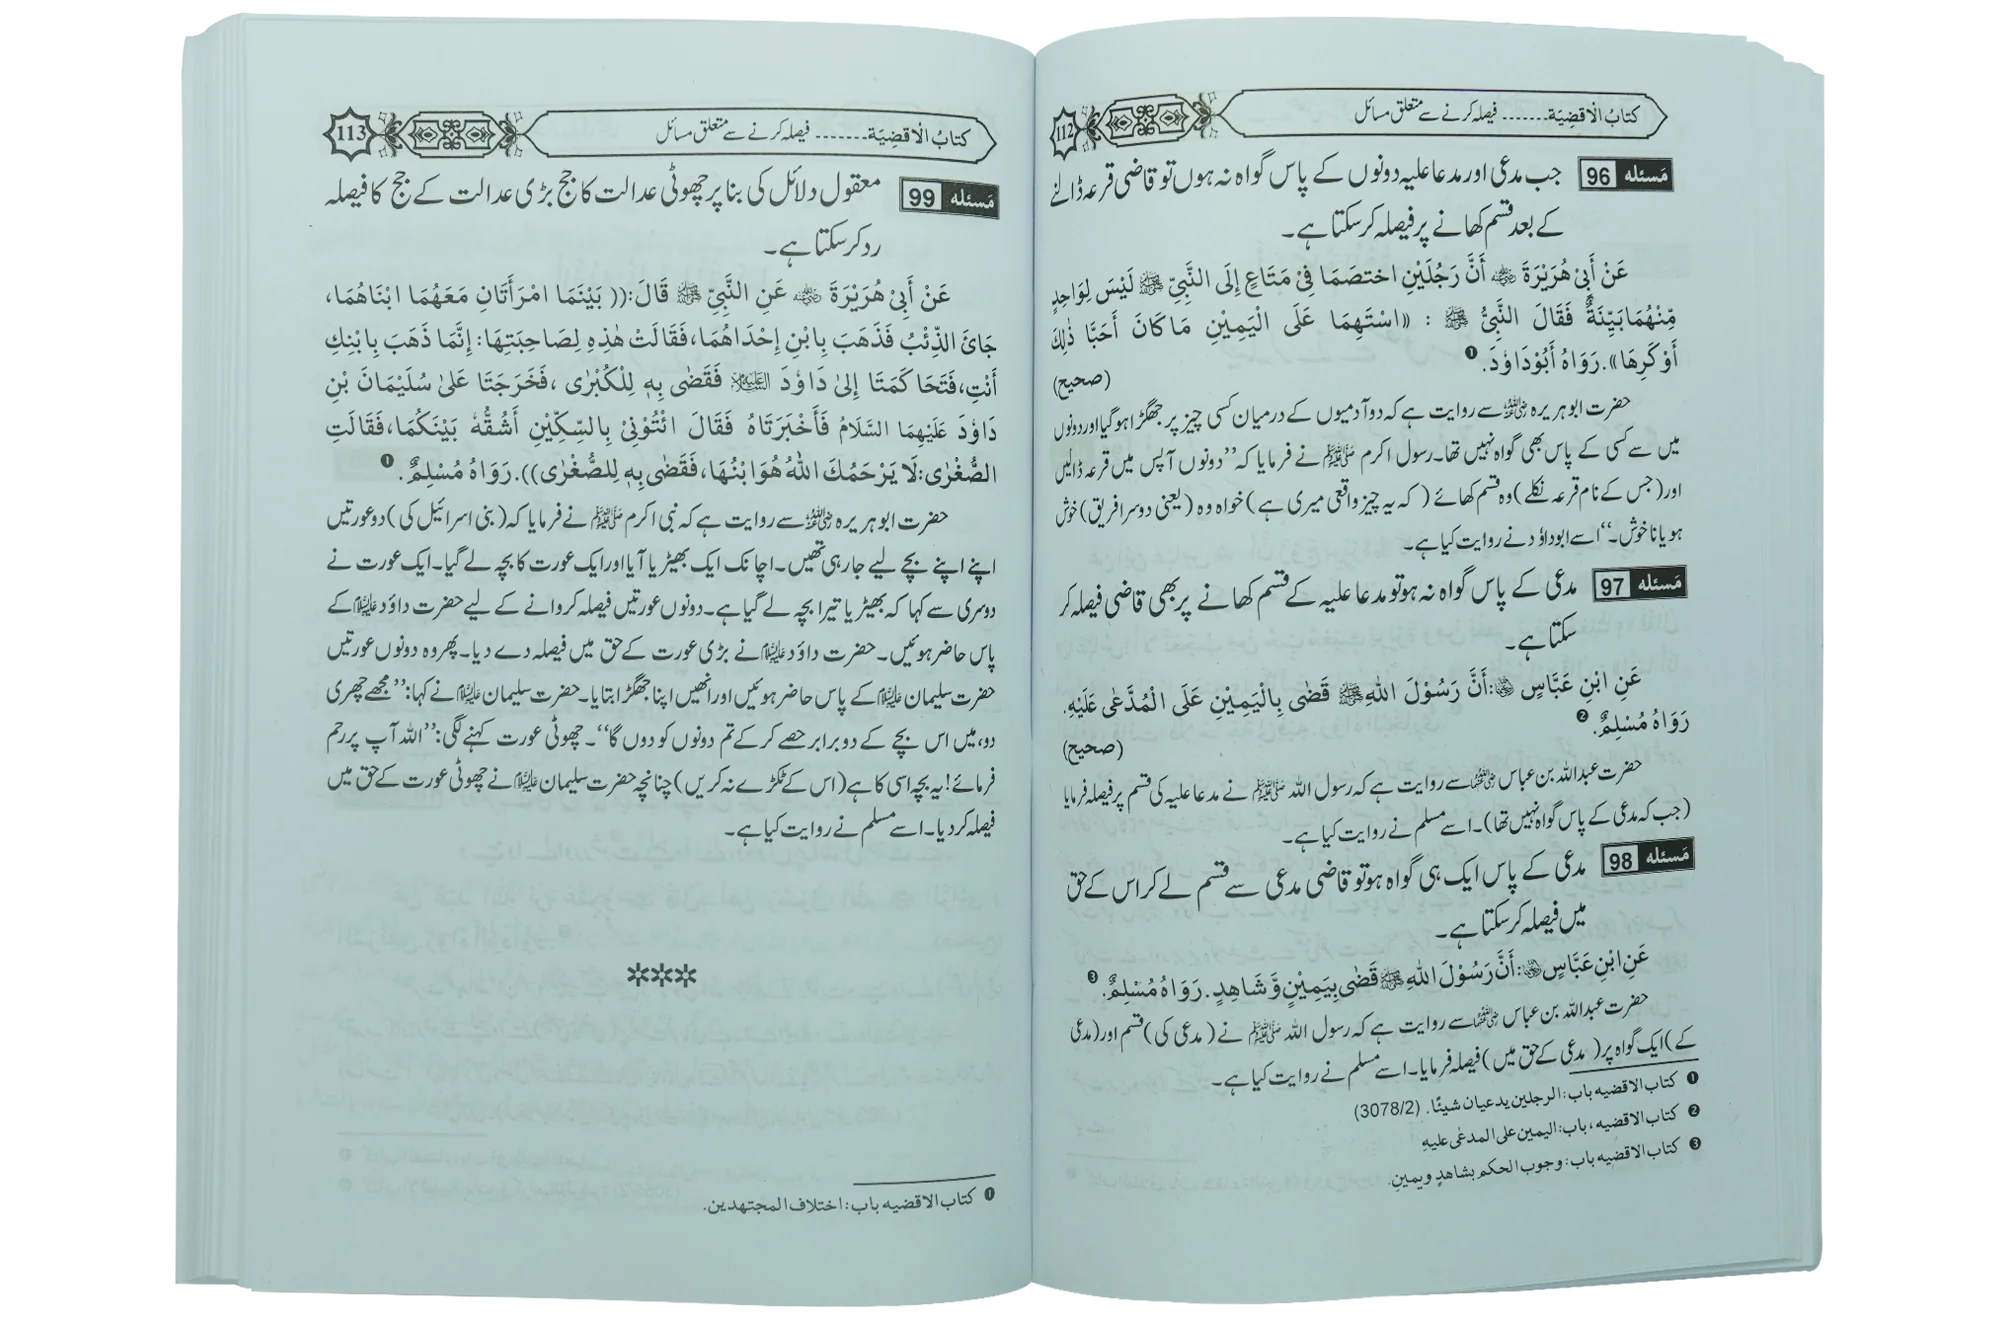 كتابُ الاقضِيَة....... فیصلہ کرنے سے متعلق مسائل
112
مَسئله 96 جب مدعی اور مدعا علیہ دونوں کے پاس گواہ نہ ہوں تو قاضی قرعہ ڈالنے
کے بعد قسم کھانے پر فیصلہ کر سکتا ہے۔
عَنْ أَبِيْ هُرَيْرَةَ ﷺ أَنَّ رَجُلَيْنِ اخْتَصَمَا فِيْ مَتَاعٍ إِلَى النَّبِيِّ ﷺ لَيْسَ لِوَاحِدٍ
مِّنْهُمَا بَيِّنَةٌ فَقَالَ النَّبِيُّ ﷺ : «اسْتَهِمَا عَلَى الْيَمِيْنِ مَا كَانَ أَحَبَّا ذٰلِكَ
أَوْ كَرِهَا».رَوَاهُ أَبُوْدَاوٗدَ. ❶
(صحيح)
حضرت ابو ہریرہ رضی اللہ عنہ سے روایت ہے کہ دو آدمیوں کے درمیان کسی چیز پر جھگڑا ہو گیا اور دونوں
میں سے کسی کے پاس بھی گواہ نہیں تھا۔ رسول اکرم ﷺ نے فرمایا کہ ’’دونوں آپس میں قرعہ ڈالیں
اور (جس کے نام قرعہ نکلے) وہ قسم کھائے (کہ یہ چیز واقعی میری ہے) خواہ وہ (یعنی دوسرا فریق) خوش
ہو یا ناخوش۔‘‘ اسے ابوداؤد نے روایت کیا ہے۔
مَسئله 97 مدعی کے پاس گواہ نہ ہو تو مدعا علیہ کے قسم کھانے پر بھی قاضی فیصلہ کر
سکتا ہے۔
عَنِ ابْنِ عَبَّاسٍ :أَنَّ رَسُوْلَ اللهِ ﷺ قَضٰى بِالْيَمِيْنِ عَلَى الْمُدَّعٰى عَلَيْهِ.
رَوَاهُ مُسْلِمٌ. ❷
(صحيح)
حضرت عبداللہ بن عباس رضی اللہ عنہما سے روایت ہے کہ رسول اللہ ﷺ نے مدعا علیہ کی قسم پر فیصلہ فرمایا
(جب کہ مدعی کے پاس گواہ نہیں تھا)۔ اسے مسلم نے روایت کیا ہے۔
مَسئله 98 مدعی کے پاس ایک ہی گواہ ہو تو قاضی مدعی سے قسم لے کر اس کے حق
میں فیصلہ کر سکتا ہے۔
عَنِ ابْنِ عَبَّاسٍ :أَنَّ رَسُوْلَ اللهِ ﷺ قَضٰى بِيَمِيْنٍ وَّشَاهِدٍ. رَوَاهُ مُسْلِمٌ. ❸
حضرت عبداللہ بن عباس رضی اللہ عنہما سے روایت ہے کہ رسول اللہ ﷺ نے (مدعی کی) قسم اور (مدعی
کے) ایک گواہ پر (مدعی کے حق میں) فیصلہ فرمایا۔ اسے مسلم نے روایت کیا ہے۔
❶ كتاب الاقضيه باب: الرجلين يدعيان شيئًا. (3078/2)
❷ كتاب الاقضيه، باب: اليمين على المدعٰى عليهِ
❸ كتاب الاقضيه باب: وجوب الحكم بشاهدٍ ويمينٍ.
كتابُ الاقضِيَة....... فیصلہ کرنے سے متعلق مسائل
113
مَسئله 99 معقول دلائل کی بنا پر چھوٹی عدالت کا جج بڑی عدالت کے جج کا فیصلہ
رد کر سکتا ہے۔
عَنْ أَبِيْ هُرَيْرَةَ عَنِ النَّبِيِّ ﷺ قَالَ:(( بَيْنَمَا امْرَأَتَانِ مَعَهُمَا ابْنَاهُمَا،
جَائَ الذِّئْبُ فَذَهَبَ بِابْنِ إِحْدَاهُمَا،فَقَالَتْ هٰذِهٖ لِصَاحِبَتِهَا: إِنَّمَا ذَهَبَ بِابْنِكِ
أَنْتِ،فَتَحَاكَمَتَا إِلىٰ دَاوٗدَ عليه السلام فَقَضٰى بِهٖ لِلْكُبْرٰى ،فَخَرَجَتَا عَلىٰ سُلَيْمَانَ بْنِ
دَاوٗدَ عَلَيْهِمَا السَّلَامُ فَأَخْبَرَتَاهُ فَقَالَ ائْتُوْنِيْ بِالسِّكِّيْنِ أَشُقُّهٗ بَيْنَكُمَا،فَقَالَتِ
الصُّغْرٰى:لَا يَرْحَمُكَ اللهُ هُوَ ابْنُهَا،فَقَضٰى بِهٖ لِلصُّغْرٰى)).رَوَاهُ مُسْلِمٌ. ❶
حضرت ابو ہریرہ رضی اللہ عنہ سے روایت ہے کہ نبی اکرم ﷺ نے فرمایا کہ (بنی اسرائیل کی) دو عورتیں
اپنے اپنے بچے لیے جارہی تھیں۔ اچانک ایک بھیڑیا آیا اور ایک عورت کا بچہ لے گیا۔ ایک عورت نے
دوسری سے کہا کہ بھیڑیا تیرا بچہ لے گیا ہے۔ دونوں عورتیں فیصلہ کروانے کے لیے حضرت داؤد علیہ السلام کے
پاس حاضر ہوئیں۔ حضرت داؤد علیہ السلام نے بڑی عورت کے حق میں فیصلہ دے دیا۔ پھر وہ دونوں عورتیں
حضرت سلیمان علیہ السلام کے پاس حاضر ہوئیں اور انھیں اپنا جھگڑا بتایا۔ حضرت سلیمان علیہ السلام نے کہا: ’’مجھے چھری
دو، میں اس بچے کے دو برابر حصے کر کے تم دونوں کو دوں گا‘‘۔ چھوٹی عورت کہنے لگی: ’’اللہ آپ پر رحم
فرمائے! یہ بچہ اسی کا ہے (اس کے ٹکڑے نہ کریں) چنانچہ حضرت سلیمان علیہ السلام نے چھوٹی عورت کے حق میں
فیصلہ کر دیا۔ اسے مسلم نے روایت کیا ہے۔
***
❶ كتاب الاقضيه باب: اختلاف المجتهدين.